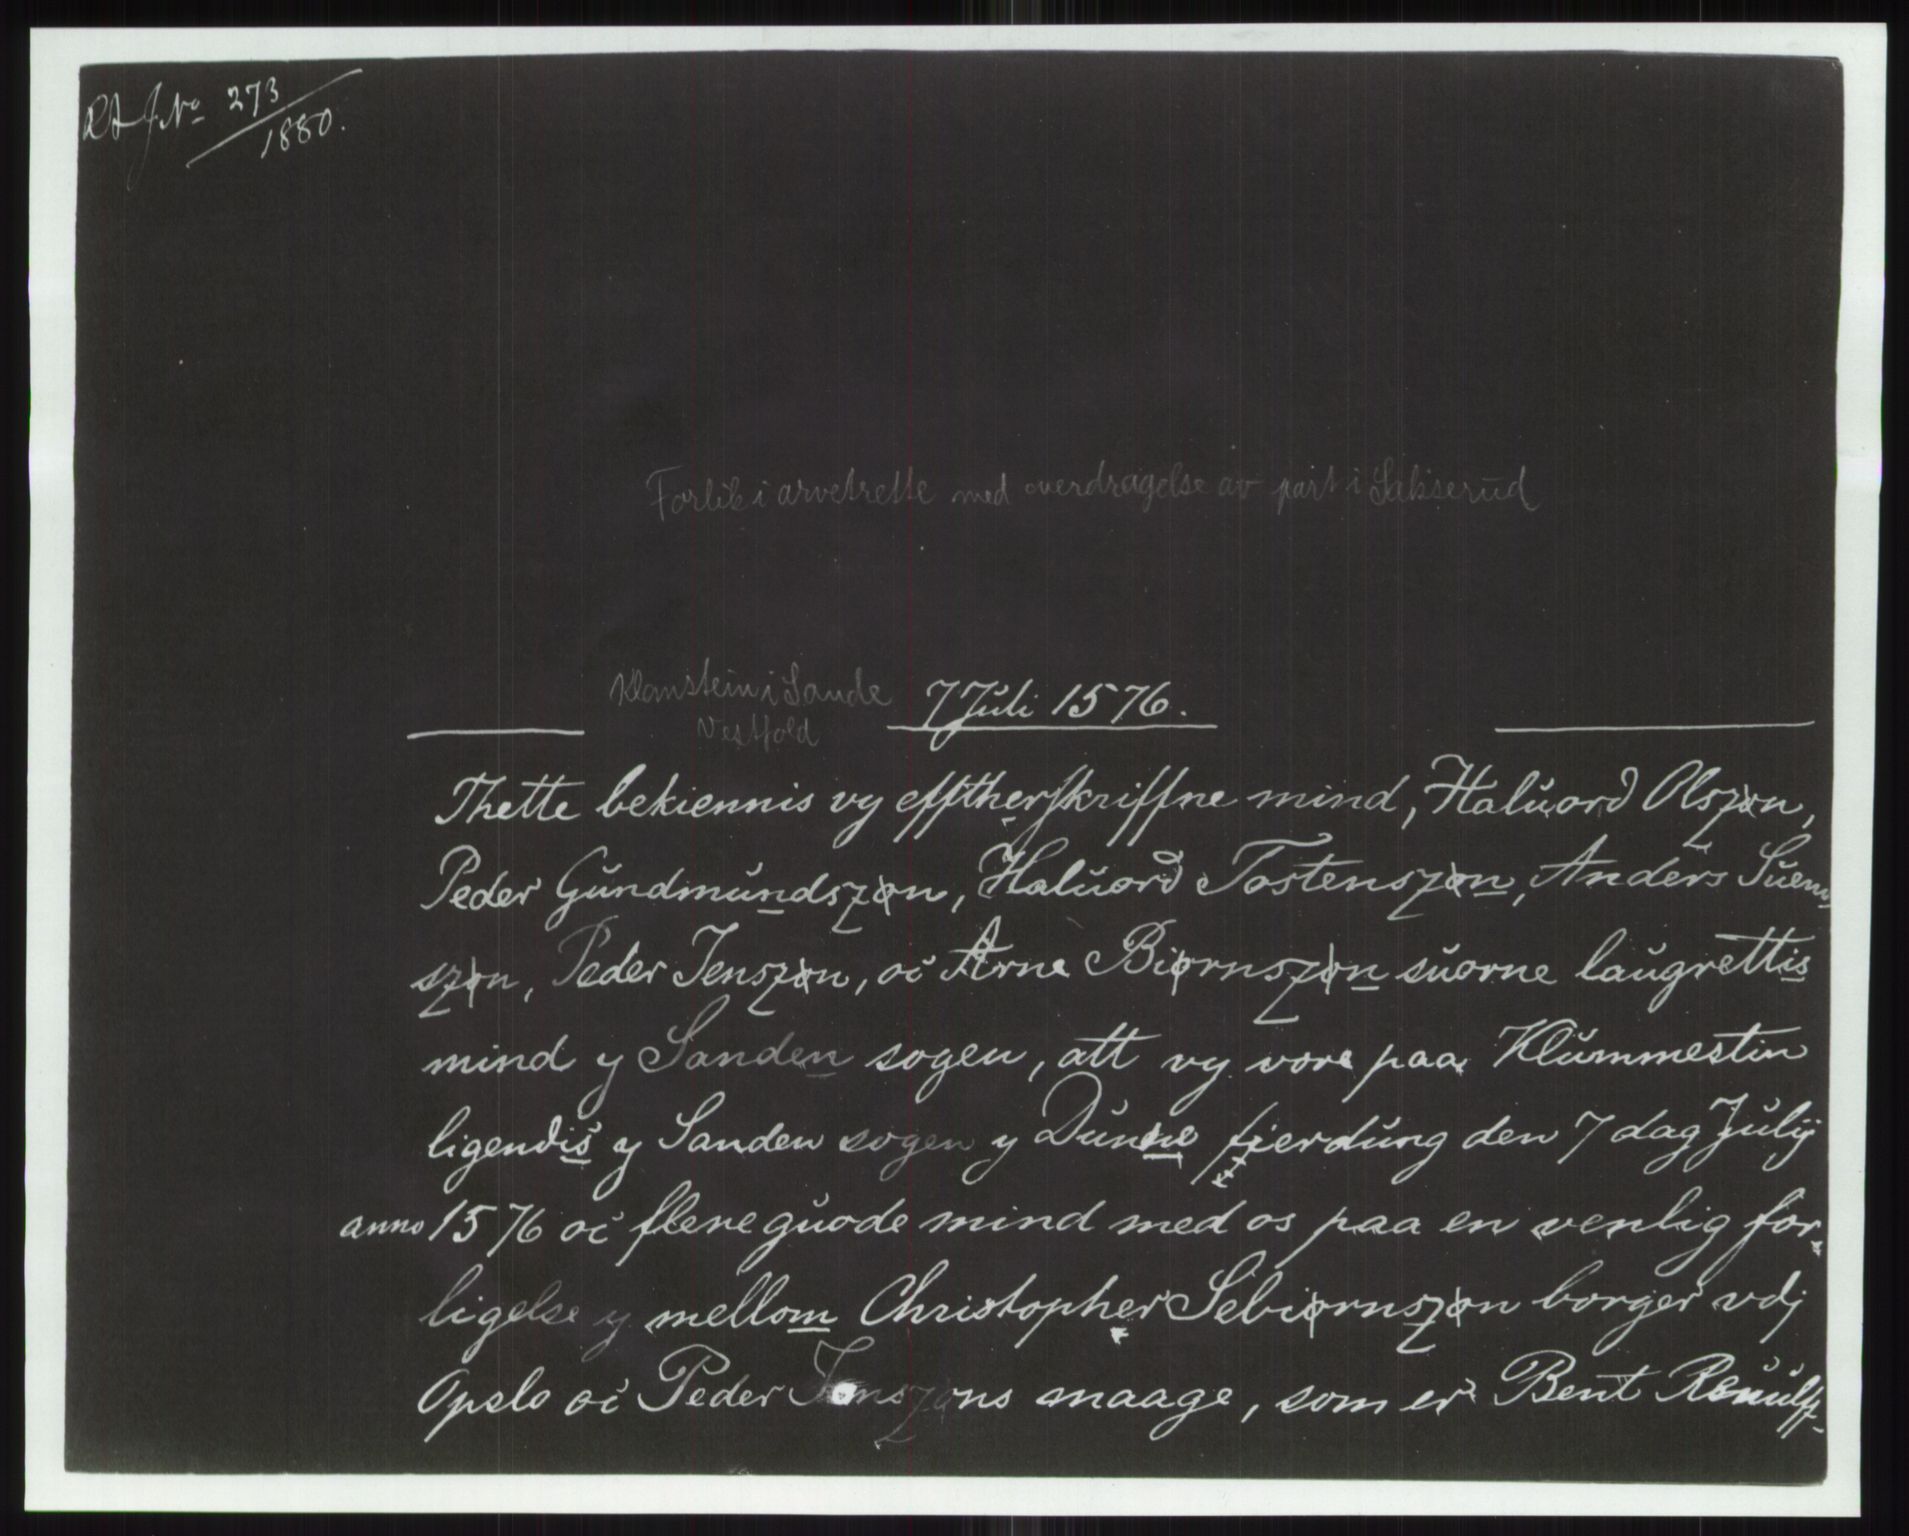 RA J.No 273/1880.
Forlik i arvetrette med overdragelse av part i Sakserud
Klomstein i Sande 7 Juli 1576.
Vestfold
Thette bekiennis vy efftherskriffne mind, Haluord Olszøn,
Peder Gundmundszøn, Haluord Tostenszøn, Anders Suend
szøn, Peder Jenszøn, oc Arne Biørnszøn suorne laugrettis
mind y Sanden sogen, att vy vore paa Klummestin
ligendis y Sanden sogen y Dunne fierdung den 7 dag Julij
anno 1576 oc flere guode mind med os paa en venlig for-
ligelse y mellom Christopher Sebiørnszøn borger vdj
Opslo oc Peder Jenszøns maage, som er Bent Reuulff-